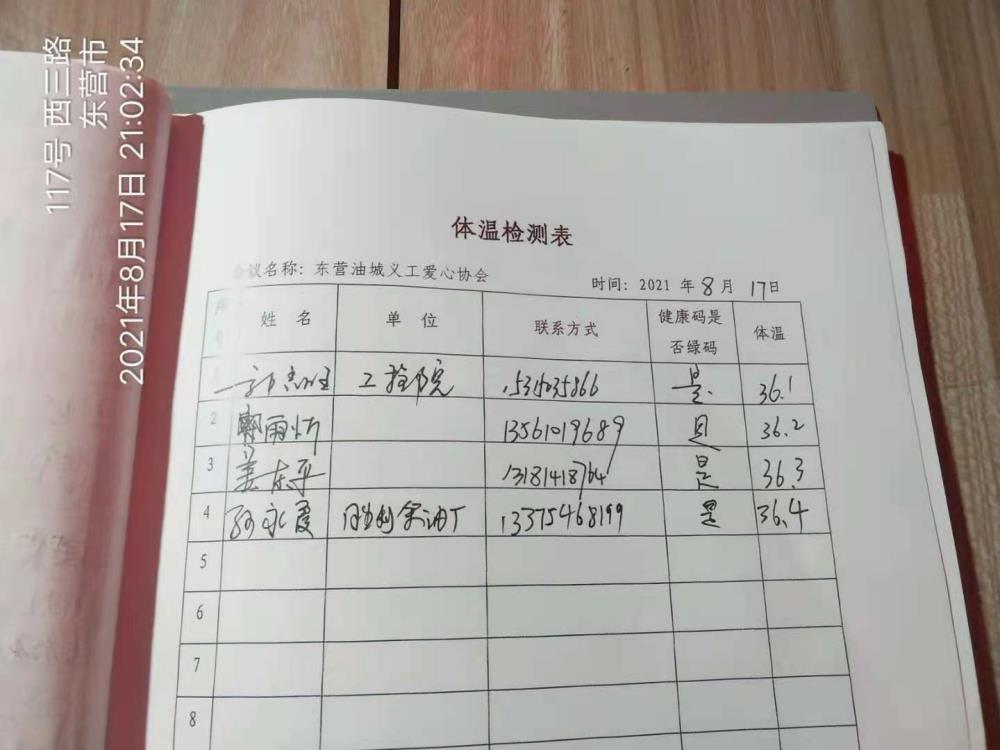 117号 西三路
东营市
2021年8月17日 21:02:34
体温检测表
会议名称: 东营油城义工爱心协会 时间: 2021 年 8 月 17日
序号 姓 名 单 位 联系方式 健康码是否绿码 体温
1 是 36.1
2 郭雨忻 13561019689 是 36.2
3 姜东平 13181418764 是 36.3
4 13375468199 是 36.4
5
6
7
8